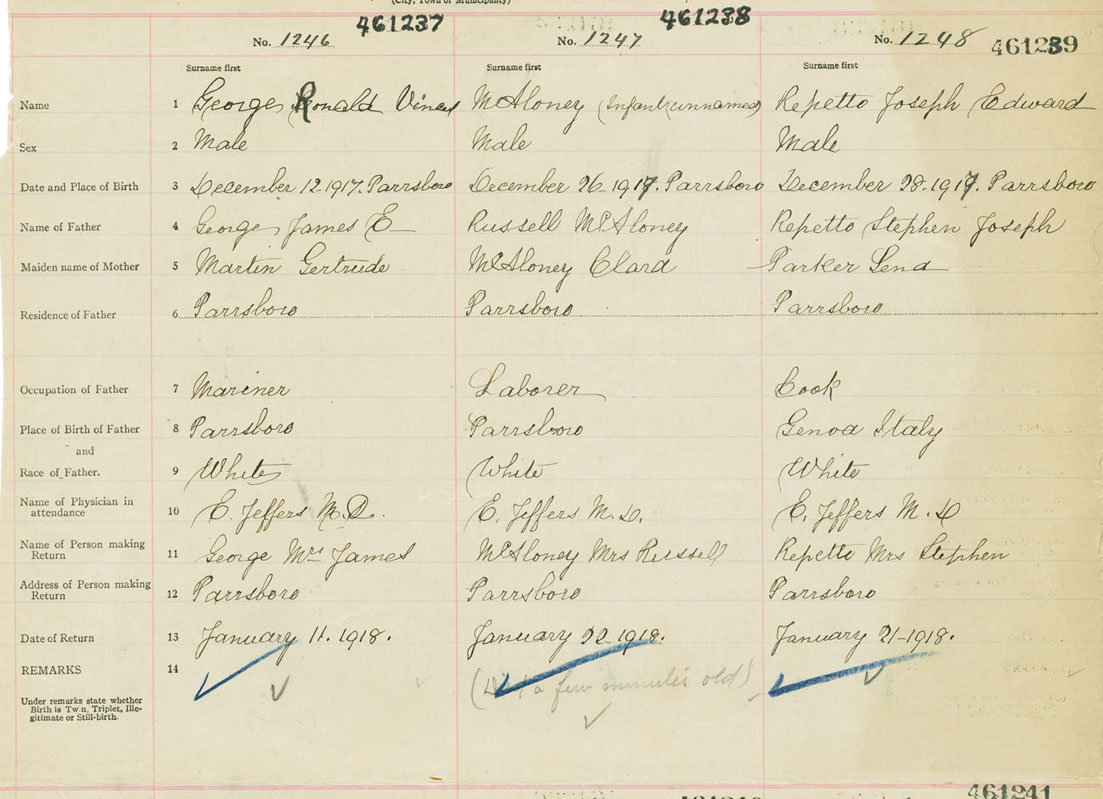 (City, Town or Municipality)
461237 461238
No. 1246 No. 1247 No. 1248 461239
Surname first Surname first Surname first
Name 1 George, Ronald McAloney (Infant unnamed) Repetto Joseph Edward
Sex 2 Male Male Male
Date and Place of Birth 3 December 12.1917. Parrsboro December 26.1917. Parrsboro December 28-1917. Parrsboro
Name of Father 4 George, James E Russell McAloney Repetto Stephen Joseph
Maiden name of Mother 5 Martin Gertrude McAloney Clara Parker Lena
Residence of Father 6 Parrsboro Parrsboro Parrsboro
Occupation of Father 7 Mariner Laborer Cook
Place of Birth of Father 8 Parrsboro Parrsboro Genoa Italy
and
Race of Father. 9 White White White
Name of Physician in
attendance 10 E. Jeffers M.D. E. Jeffers M.D. E. Jeffers M.D
Name of Person making
Return 11 George Mrs James McAloney Mrs Russell Repetto Mrs Stephen
Address of Person making
Return 12 Parrsboro Parrsboro Parrsboro
Date of Return 13 January 11. 1918. January 22-1918. January 21-1918.
REMARKS 14 a few minutes old)
Under remarks state whether
Birth is Twin, Triplet, Ille-
gitimate or Still-birth.
461241